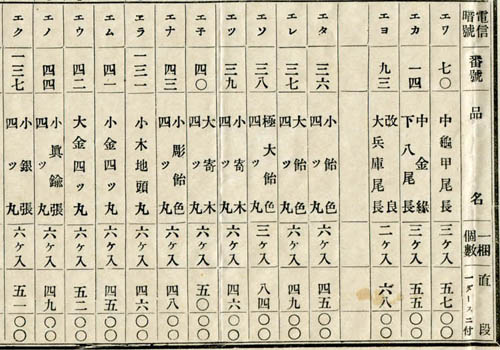 電信暗號 番號 品名 一梱個數 直段 一ダースニ付
エワ 七〇 中龜甲尾長 三ケ入 五七〇〇
エカ 一四 中金緣下八尾長 三ケ入 五五〇〇
エヨ 九三 改良大兵庫尾長 二ケ入 六八〇〇
エタ 三六 小飴色四ッ丸 六ケ入 四五〇〇
エレ 三七 大飴色四ッ丸 六ケ入 四九〇〇
エソ 三八 極大飴色四ッ丸 三ケ入 八四〇〇
エツ 三九 小寄木四ッ丸 六ケ入 四六〇〇
エ子 四〇 大寄木四ッ丸 六ケ入 五〇〇〇
エナ 四三 小彫飴色四ッ丸 六ケ入 四八〇〇
エラ 一三一 小木地頭丸 六ケ入 四六〇〇
エム 四一 小金四ッ丸 六ケ入 四五〇〇
エウ 四二 大金四ッ丸 六ケ入 五二〇〇
エノ 四四 小眞鍮張四ッ丸 六ケ入 四九〇〇
エク 一三七 小銀張四ッ丸 六ケ入 五一〇〇